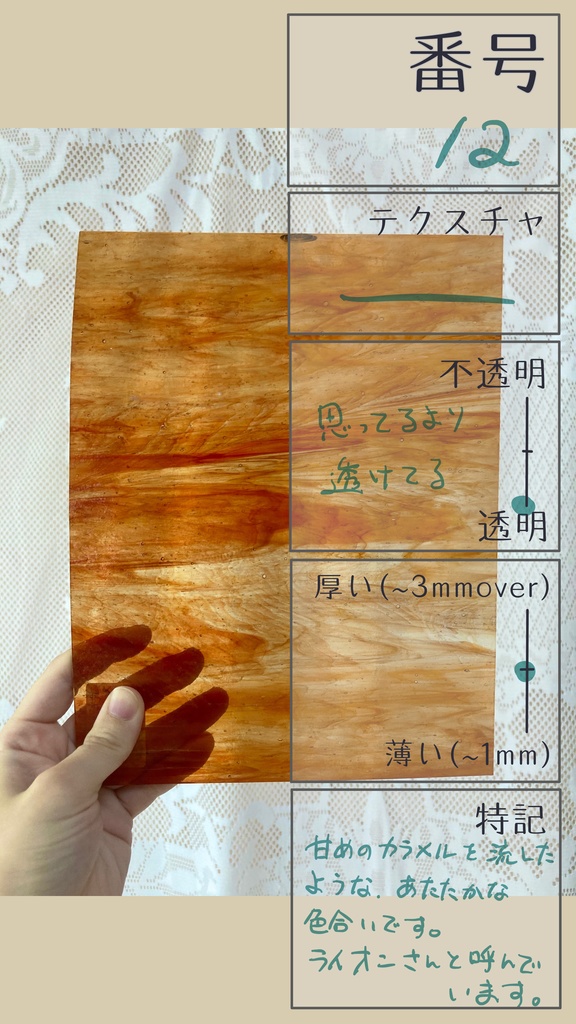 番号
12
テクスチャ
不透明
思ってるより
透けてる
透明
厚い(~3mmover)
薄い(~1mm)
特記
甘めのカラメルを流した
ような、あたたかな
色合いです。
ライオンさんと呼んで
います。